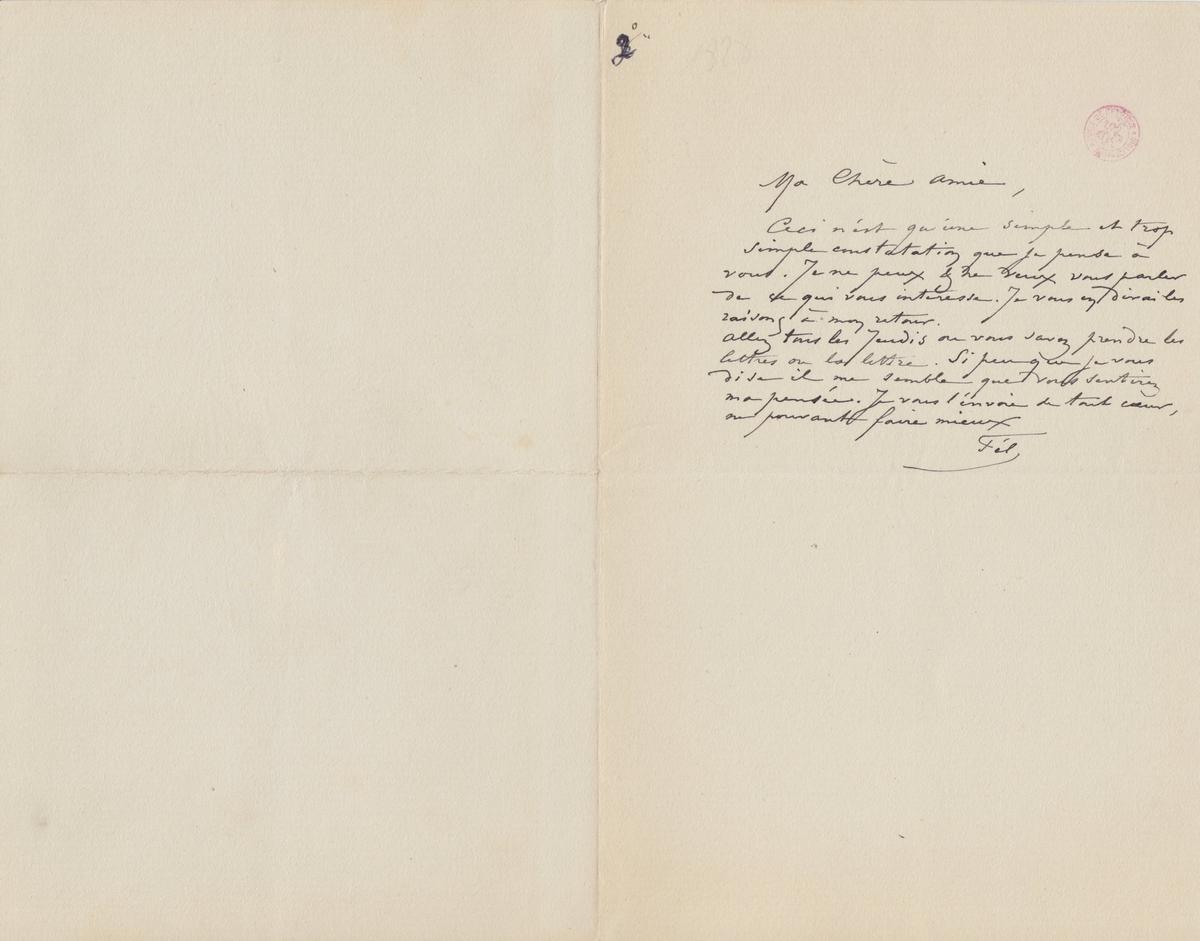 2°
Ma Chère amie,
Ceci n'est qu'une simple et trop
simple constatation que je pense à
vous. Je ne peux & ne veux vous parler
de ce qui vous intéresse. Je vous en dirai les
raisons à mon retour.
Allez tous les Jeudis ou vous savez prendre les
lettres ou la lettre. Si peu que je vous
dise il me semble que vous sentirez
ma pensée. Je vous l'envoie de tout cœur,
ne pouvant faire mieux
Fél